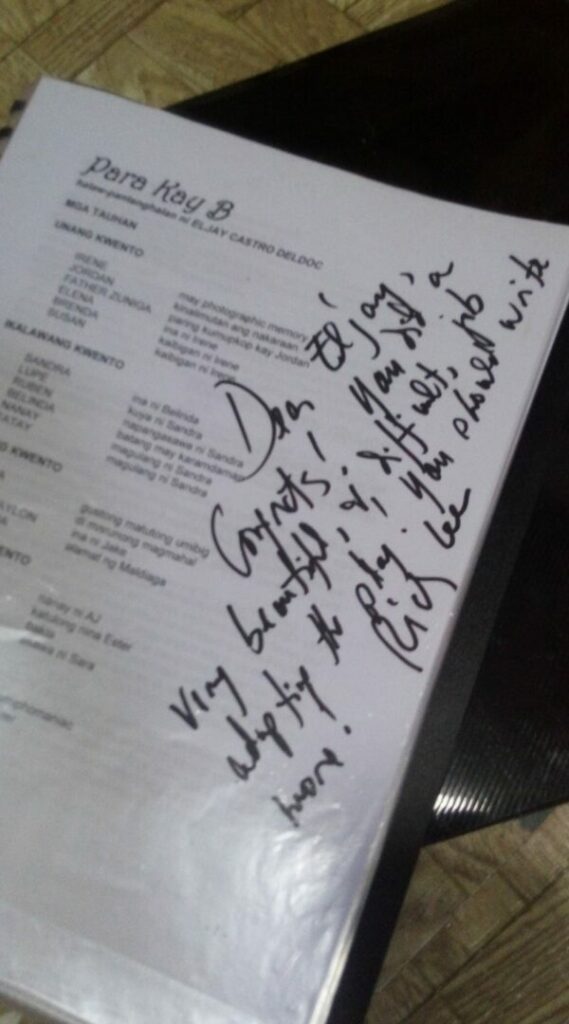 Para Kay B
halaw-pantanghalan ni ELJAY CASTRO DELDOC
MGA TAUHAN
UNANG KWENTO
IRENE may photographic memory
JORDAN kinalimutan ang nakaraan
FATHER ZUNIGA paring kumupkop kay Jordan
ELENA ina ni Irene
BRENDA kaibigan ni Irene
SUSAN kaibigan ni Irene
IKALAWANG KWENTO
SANDRA ina ni Belinda
LUPE kuya ni Sandra
RUBEN napangasawa ni Sandra
BELINDA batang may karamdaman
NANAY magulang ni Sandra
TATAY magulang ni Sandra
KWENTO
gustong matutong umibig
di marunong magmahal
ina ni Jake
alamat ng Maldiaga
nanay ni AJ
katulong nina Ester
ni Sara
Dear Eljay,
Congrats! You did a
very beautiful, &, difficult, job
adapting the play. You should write
more!
Ricky Lee